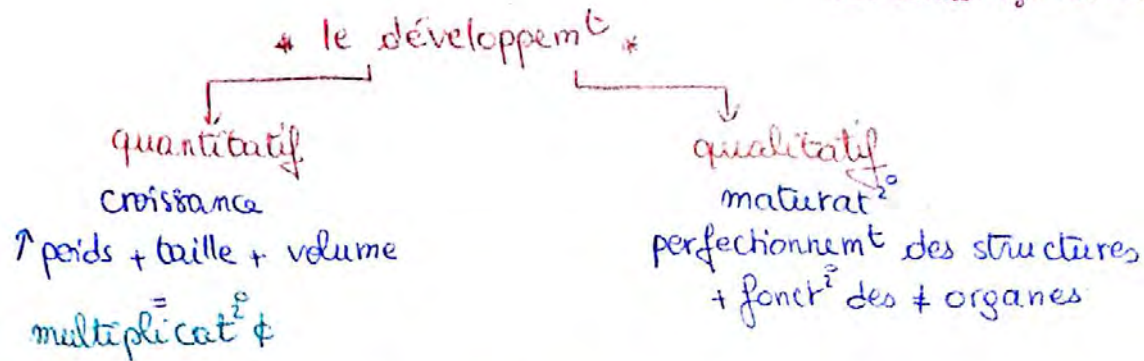 * le développemt *
quantitatif
croissance
↑ poids + taille + volume
=
multiplicat° ¢
qualitatif
maturat°
perfectionnemt des structures
+ fonct° des ≠ organes